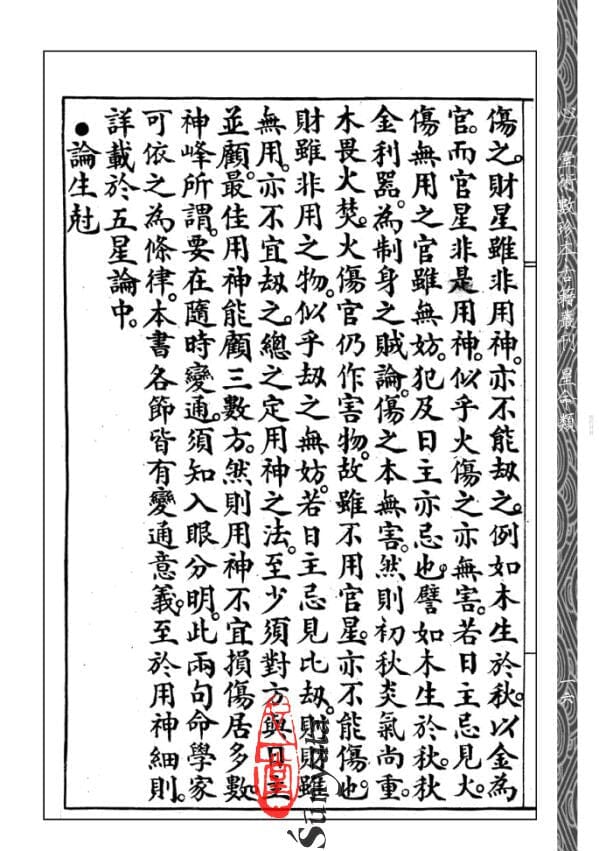 心一堂術數珍本古籍叢刊 星命類
一六
傷之。財星雖非用神。亦不能刼之。例如木生於秋。以金為
官。而官星非是用神。似乎火傷之亦無害。若日主忌見火。
傷無用之官雖無妨。犯及日主亦忌也。譬如木生於秋。秋
金利器。為制身之賊論。傷之本無害。然則初秋炎氣尚重。
木畏火焚。火傷官仍作害物。故雖不用官星。亦不能傷也
財雖非用之物。似乎刼之無妨。若日主忌見比刼。則財雖
無用。亦不宜刼之。總之定用神之法。至少須對方與日主
並顧。最佳用神能顧三數方。然則用神不宜損傷居多數
神峰所謂。要在隨時變通。須知入眼分明。此兩句命學家
可依之為條律。本書各節皆有變通意義。至於用神細則。
詳載於五星論中。
●論生尅
Śūnyatā